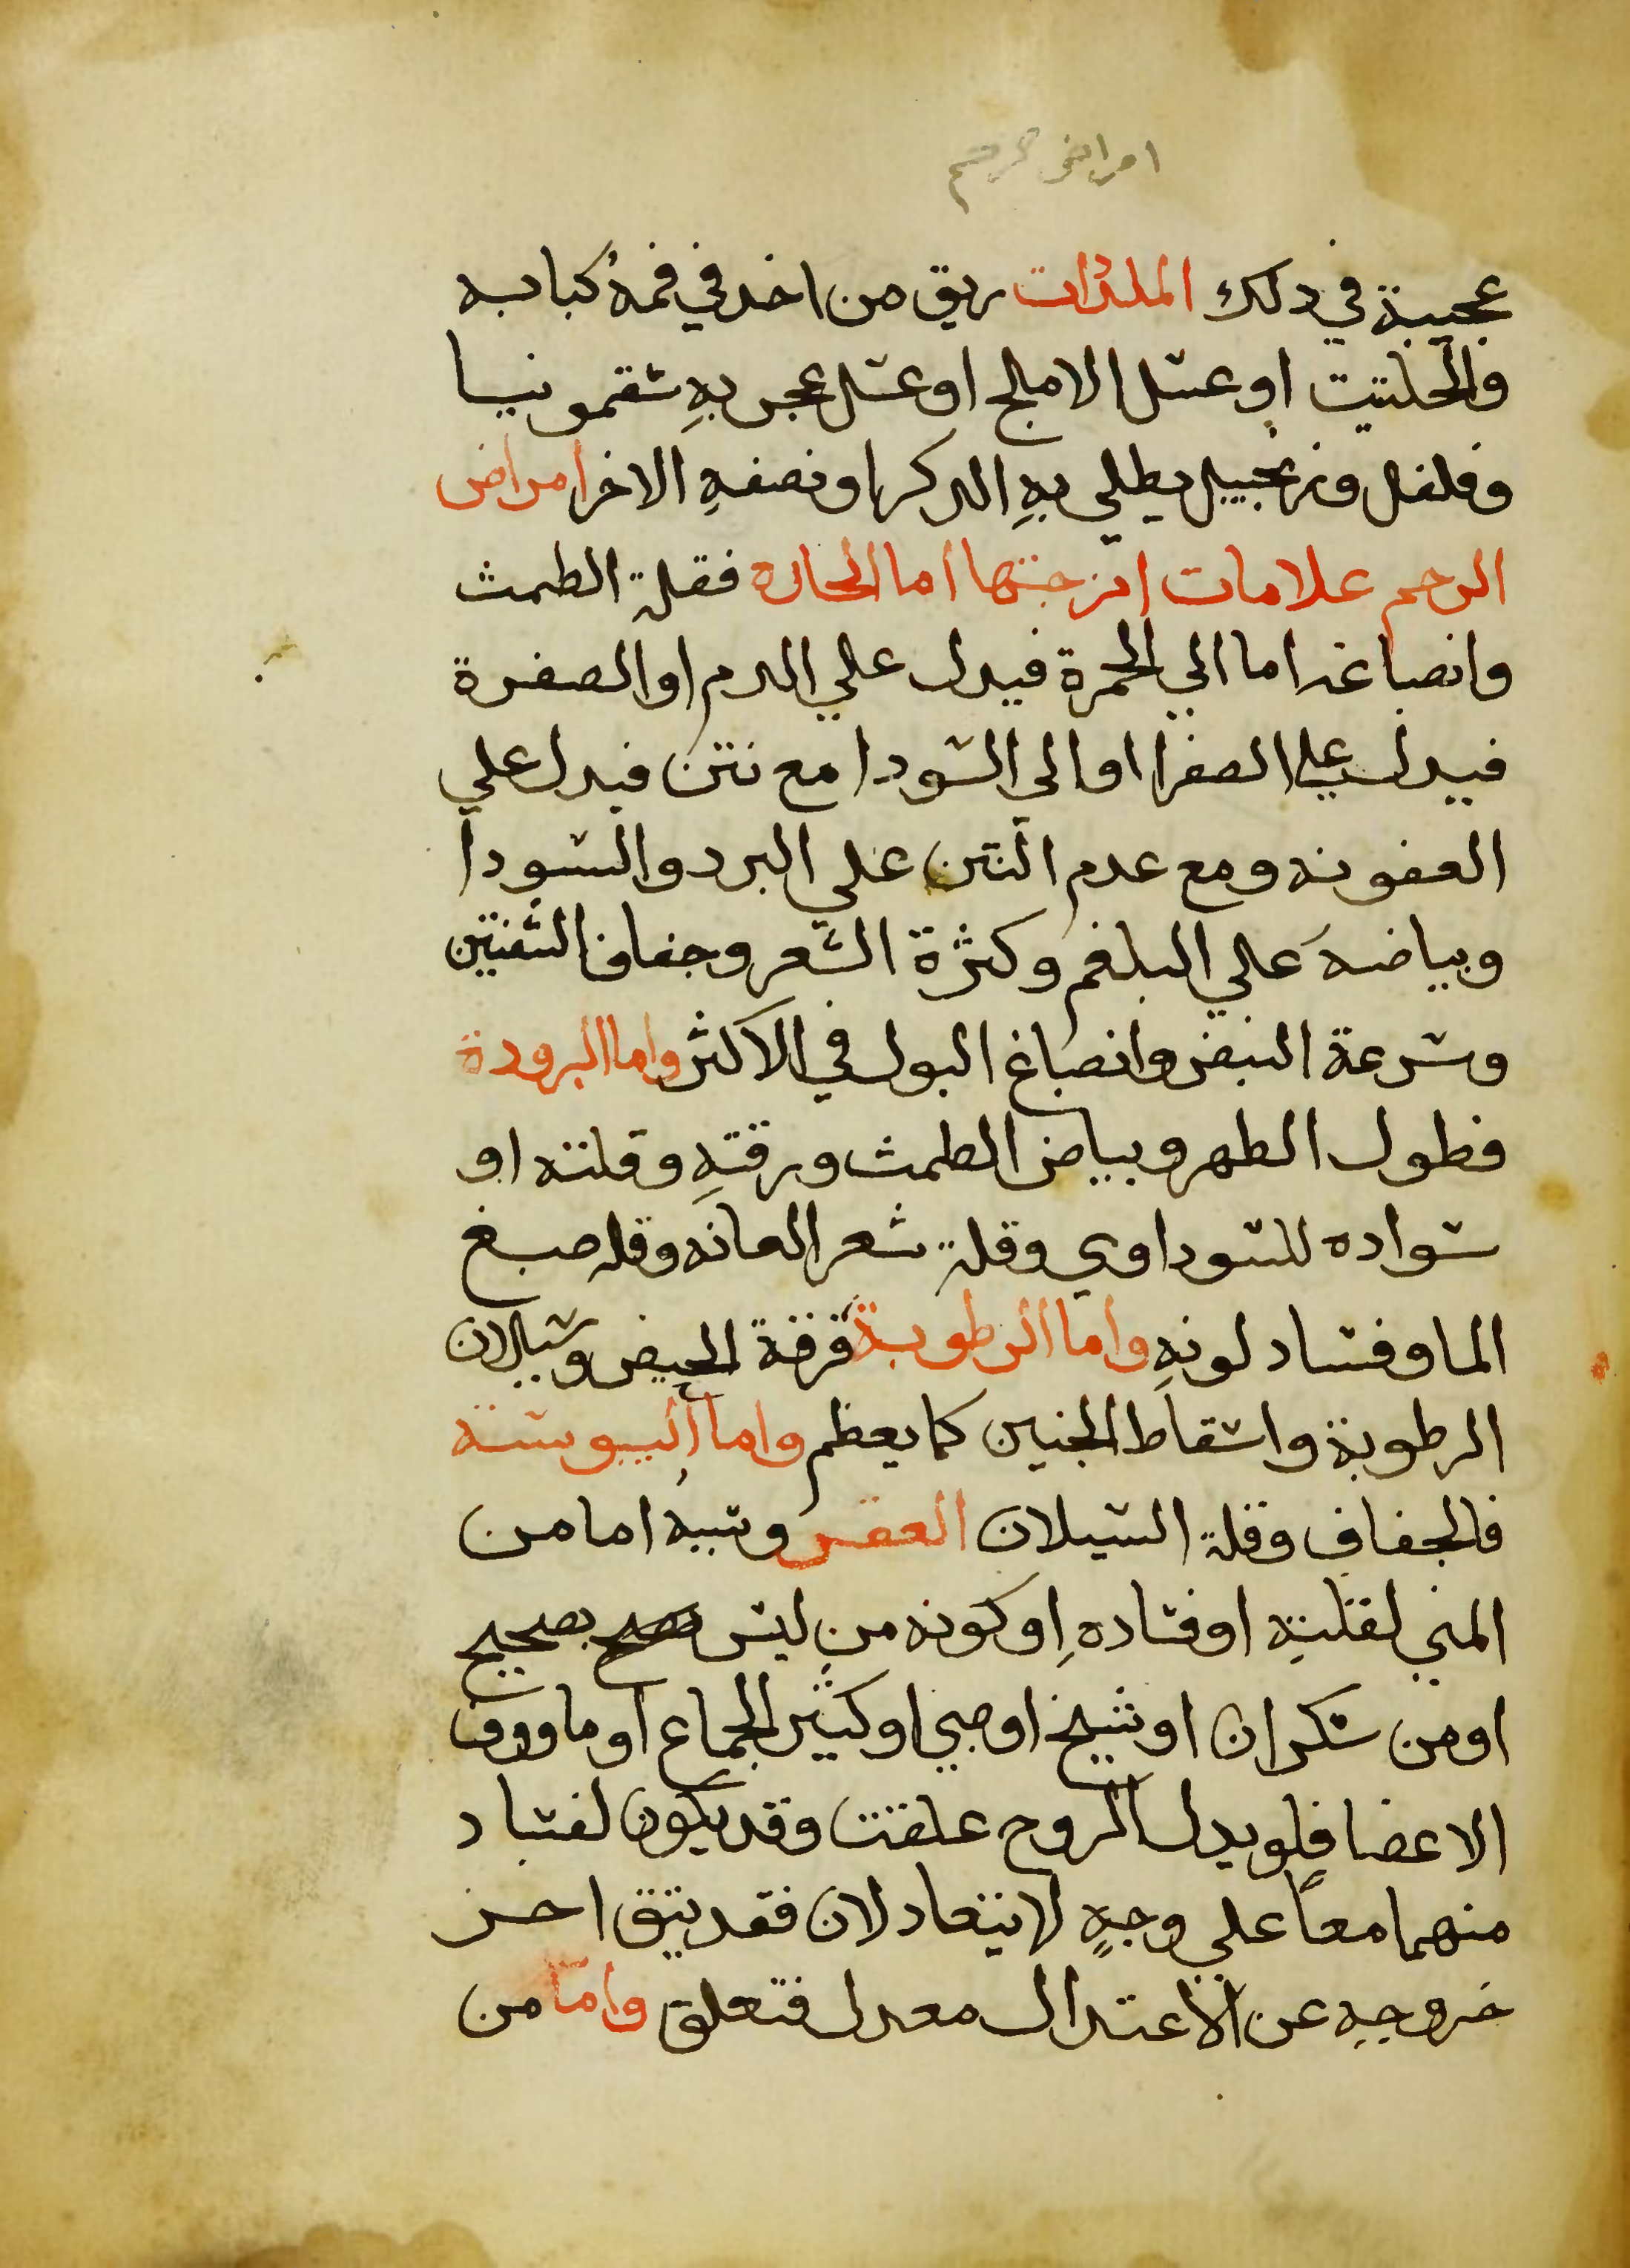 امراض الرحم
عجيبة في دلك الملذذات ريق من اخد في فمهُ كبابه
والحلتيت او عسل الاملج او عسل عجن بهِ سقمونيا
وفلفل وزنجبيل يطلي بهِ الدكر او نصفهِ الاخر امراض
الرحم علامات امزجتها اما الحاره فقلة الطمث
وانصباغه اما الي الحمرة فيدل علي الدم او الصفرة
فيدل علي الصفرا او الي السودا مع نتن فيدل علي
العفونه ومع عدم النتن علي البرد والسودا
وبياضه علي البلغم وكثرة الشعر وجفاف الشفتين
وسرعة النبض وانصباغ البول في الاكثر واما البرودة
فطول الطهر وبياض الطمث ورقتهِ وقلته او
سواده للسوداوي وقلة شعر العانه وقله صبغ
الما وفساد لونهِ واما الرطوبة فرقة الحيض وسيلان
الرطوبة واسقاط الجنين كما يعظم واما اليبوسة
فالجفاف وقلة السيلان العقر وسببهُ اما من
المني لقلتهِ او فسادهِ او كونه من ليس بصحيح
او من سكران او شيخ او صبي او كثير الجماع او ماووف
الاعضا فلو بدل الزوج علقت وقد يكون لفساد
منهما معاً علي وجهٍ لا يتعادلان فقد يتق احر
خروجهِ عن الاعتدال معدل فتعلق واما من